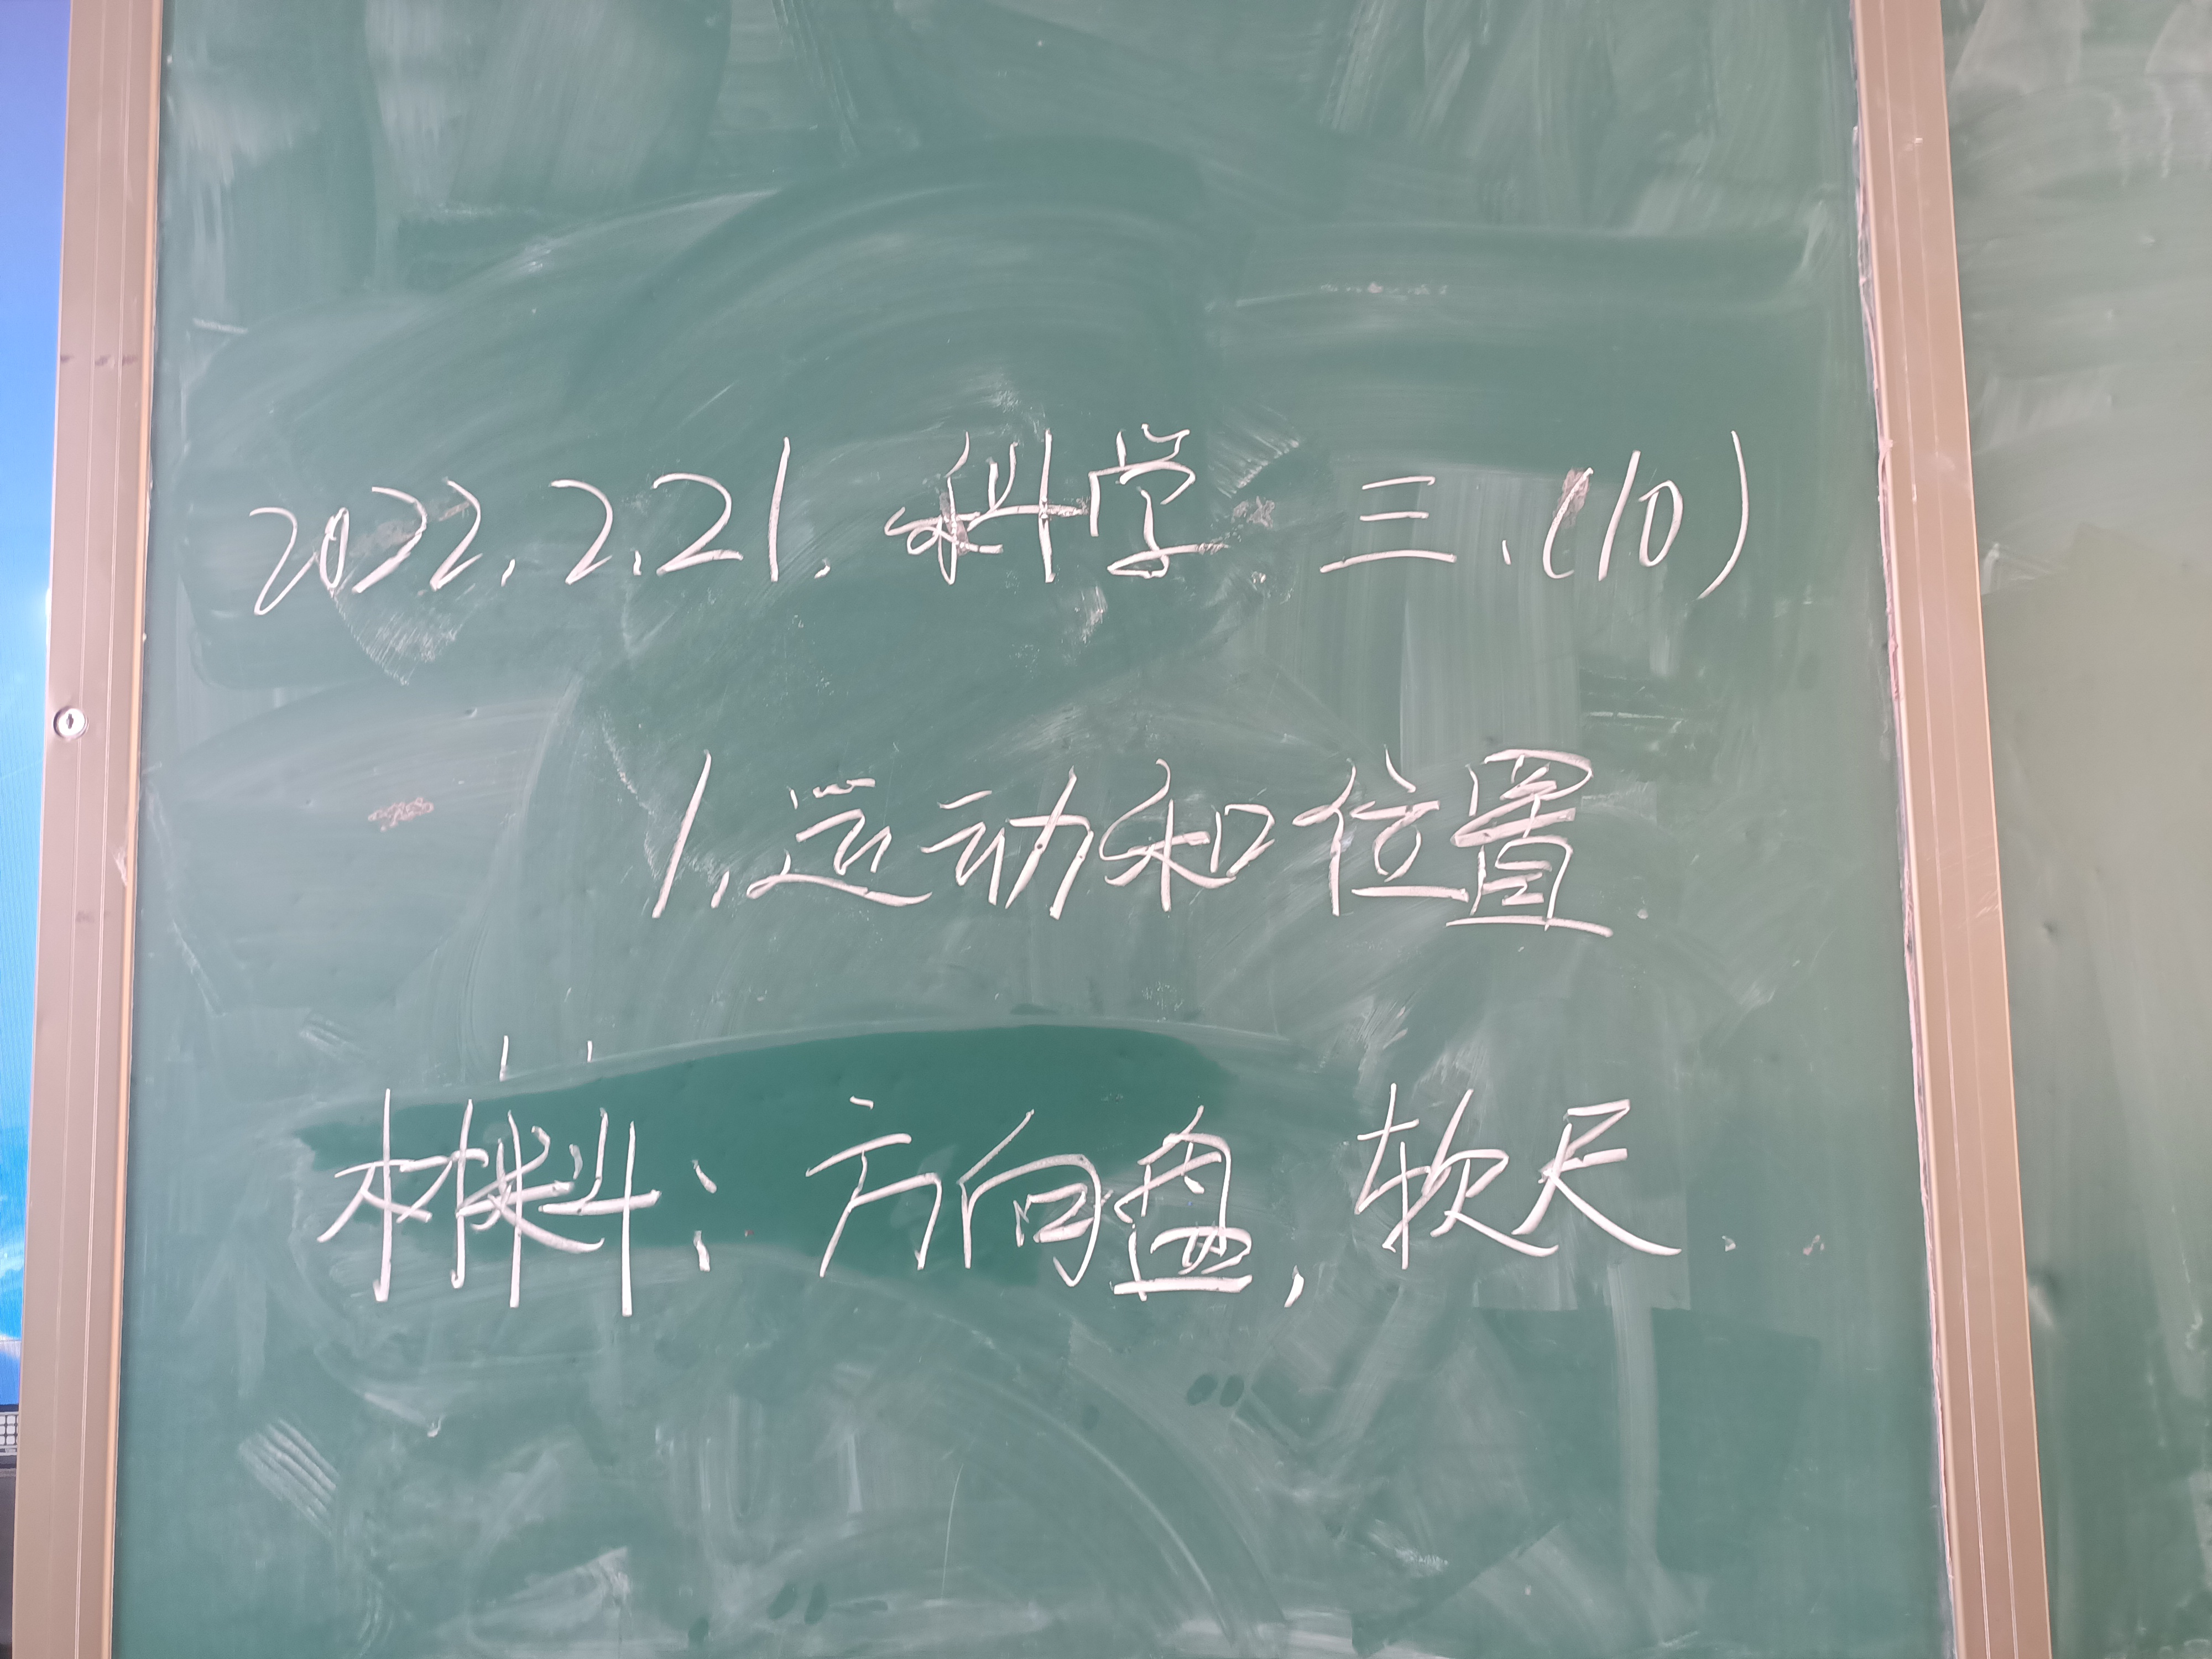 2022.2.21.科学 三.(10)
1.运动和位置
材料:方向盘,软尺.